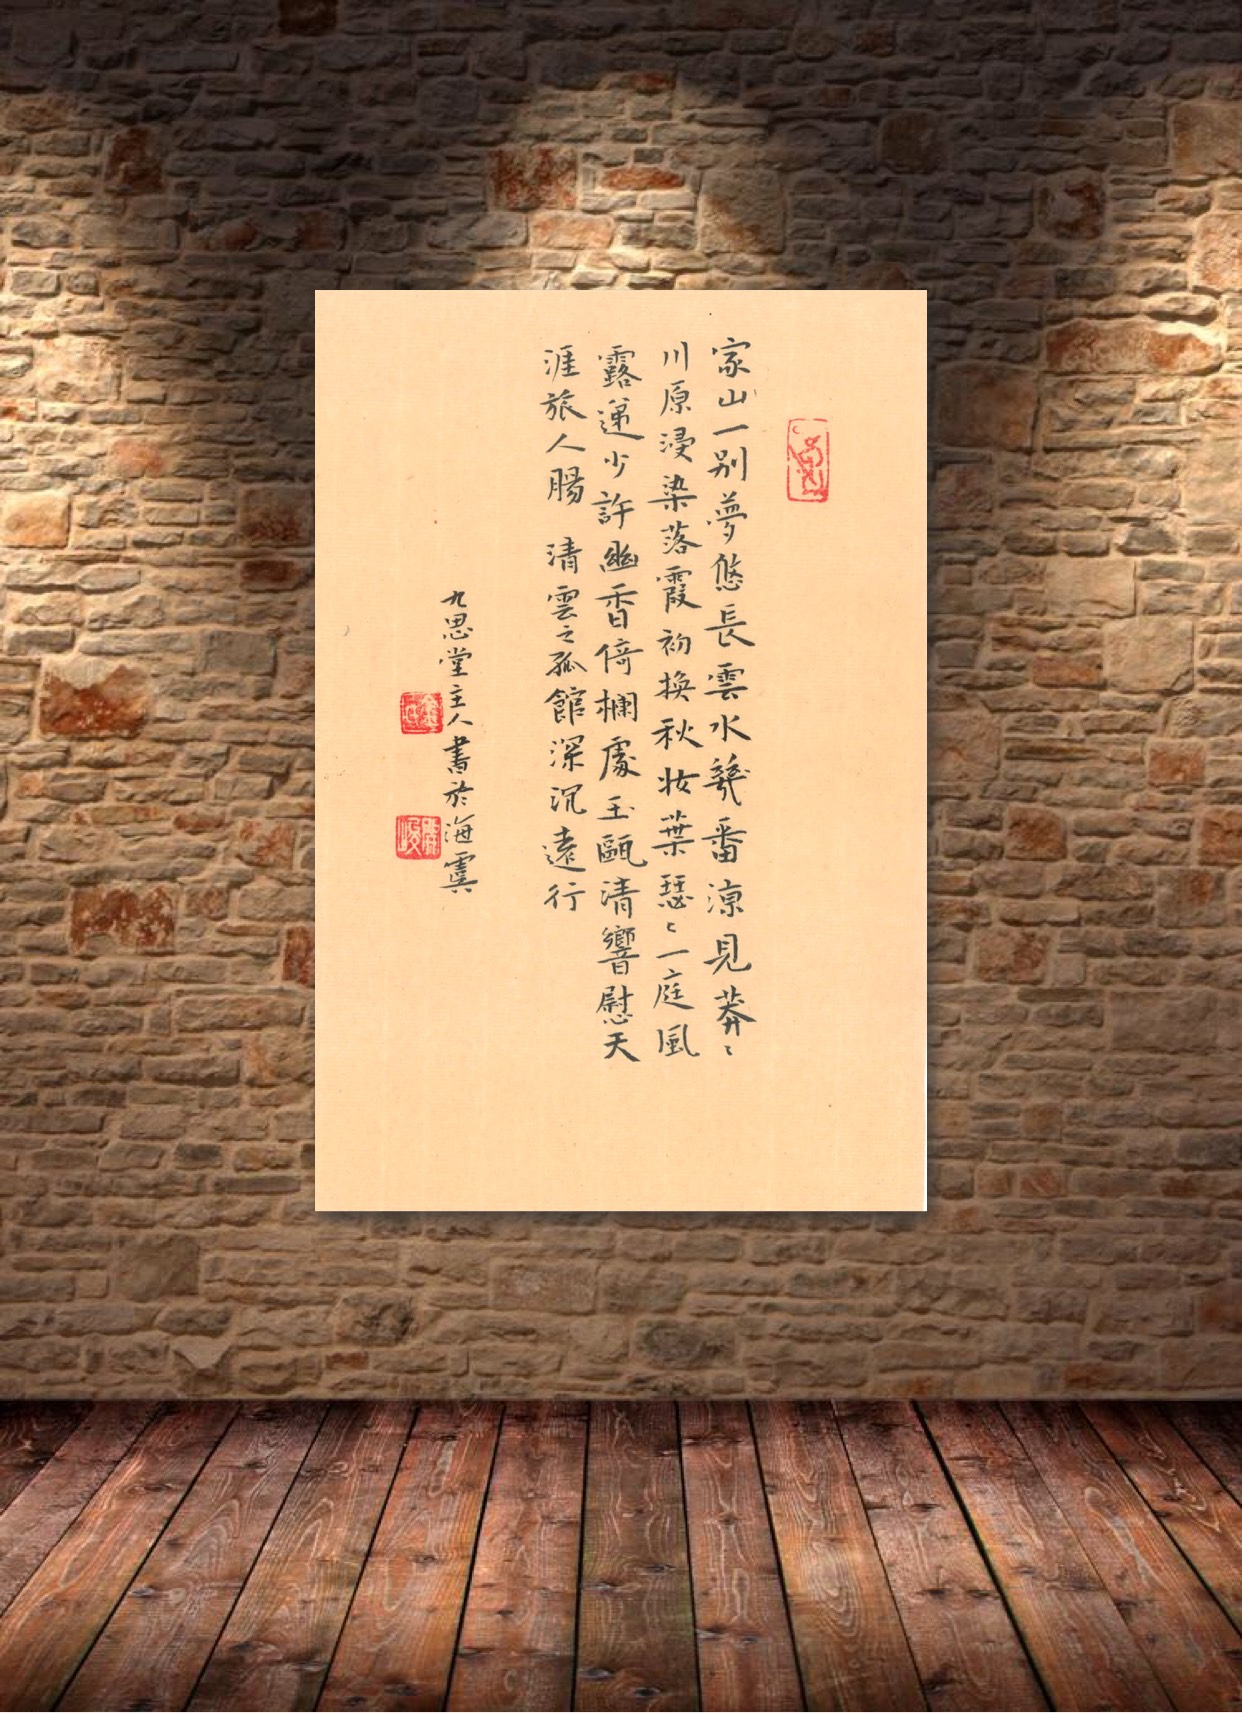 家山一別夢悠長雲水幾番涼見莽〻
川原浸染落霞初換秋妝葉瑟〻一庭風
露遞少許幽香倚欄處玉甌清響慰天
涯旅人腸 清雲之孤館深沉遠行
九思堂主人書於海